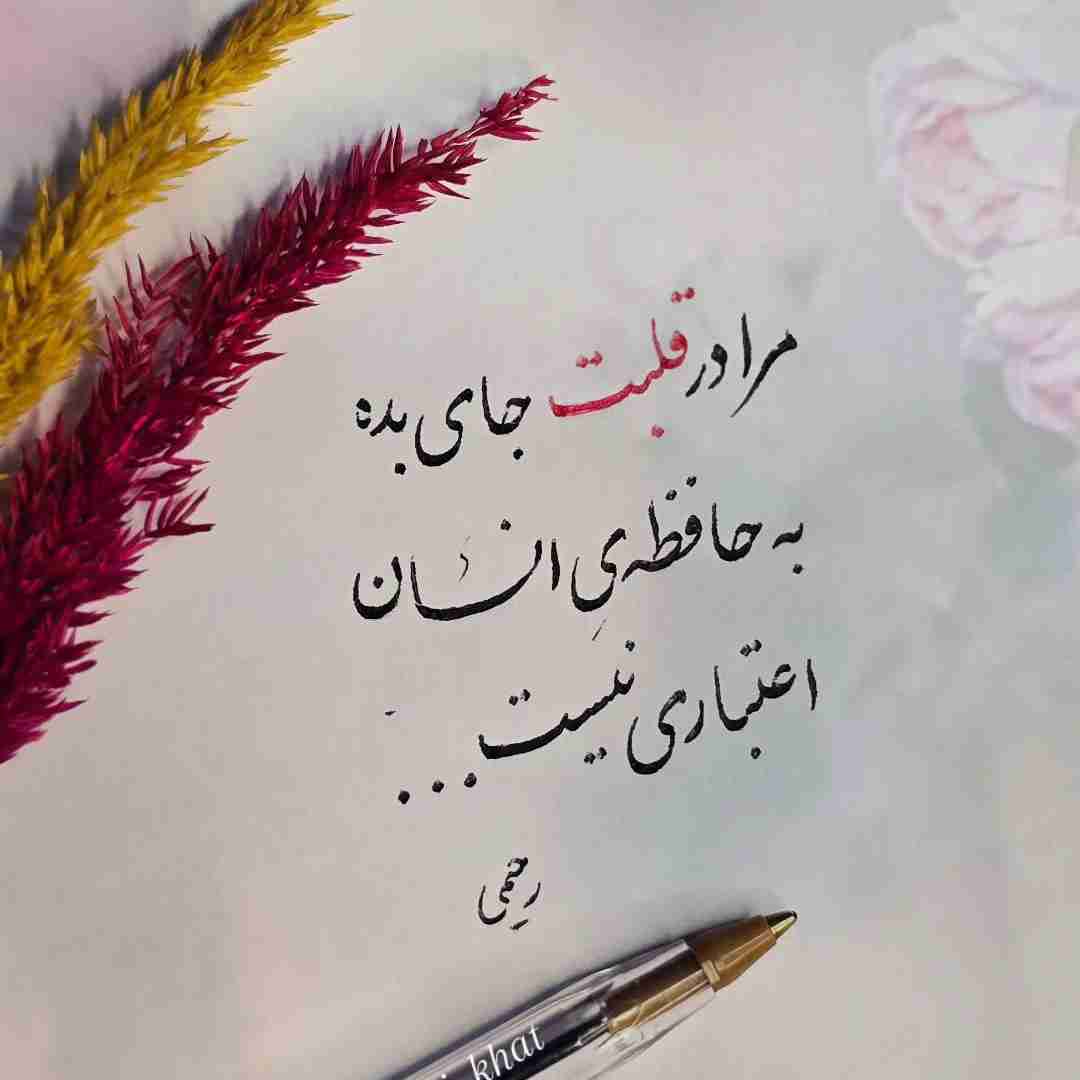 مرا در قلبت جای بده
به حافظه‌یِ انسان
اعتباری نیست...
رحیمی
khat